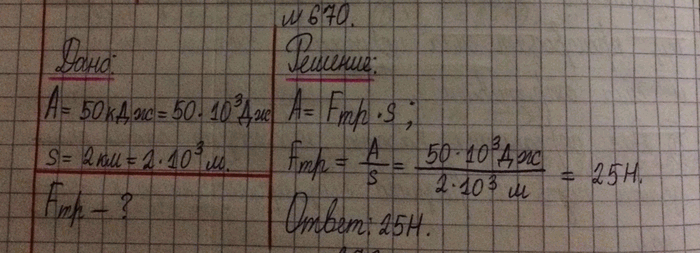 № 670.
Дано:
A = 50 кДж = 50 · 10³ Дж
s = 2 км = 2 · 10³ м.
Fтр – ?
Решение:
A = Fтр · s ;
Fтр = A/s = 50 · 10³ Дж / 2 · 10³ м = 25 Н.
Ответ: 25 Н.